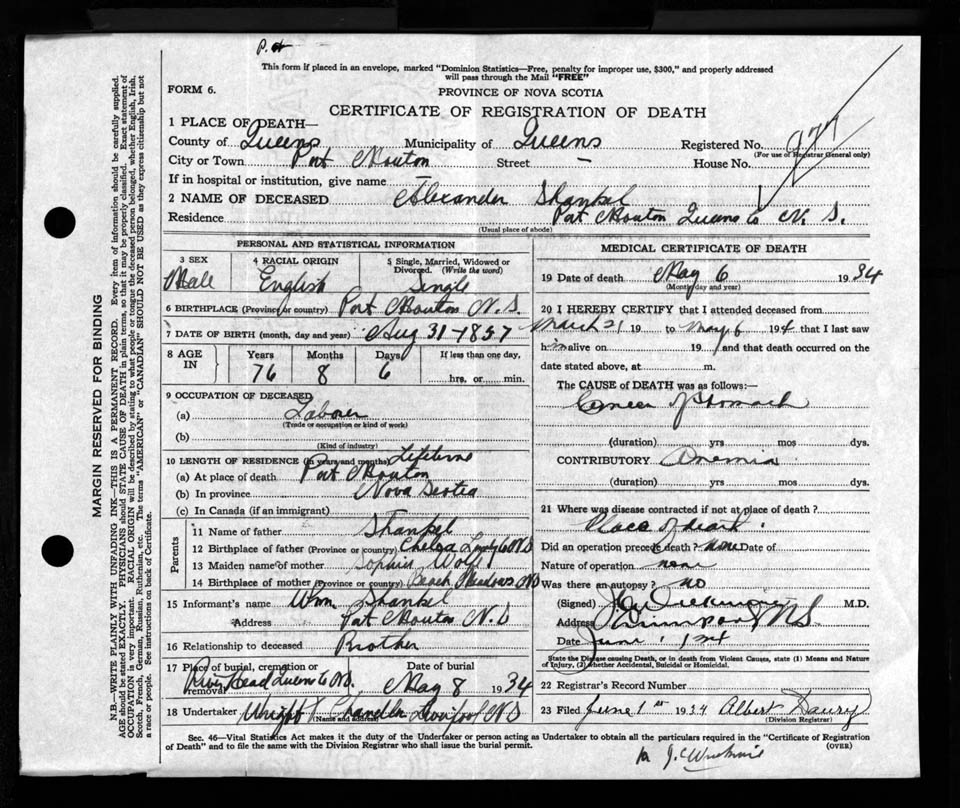 This form if placed in an envelope, marked "Dominion Statistics—Free, penalty for improper use, $300," and properly addressed
will pass through the Mail "FREE"
FORM 6.
PROVINCE OF NOVA SCOTIA
CERTIFICATE OF REGISTRATION OF DEATH
1 PLACE OF DEATH—
County of Queens Municipality of Queens Registered No. 977
(For use of Registrar General only)
City or Town Port Mouton Street — House No.
If in hospital or institution, give name —
2 NAME OF DECEASED Alexander Shankel
Residence Port Mouton Queens Co N. S.
(Usual place of abode)
PERSONAL AND STATISTICAL INFORMATION
3 SEX 4 RACIAL ORIGIN 5 Single, Married, Widowed or Divorced. (Write the word)
Male English Single
6 BIRTHPLACE (Province or country) Port Mouton N. S
7 DATE OF BIRTH (month, day and year) Aug 31-1857
8 AGE IN Years Months Days If less than one day,
76 8 6 hrs. or min.
9 OCCUPATION OF DECEASED
(a) Laborer
(Trade or occupation or kind of work)
(b)
(Kind of industry)
10 LENGTH OF RESIDENCE (in years and months) Lifetime
(a) At place of death Port Mouton
(b) In province Nova Scotia
(c) In Canada (if an immigrant)
Parents
11 Name of father Shankel
12 Birthplace of father (Province or country) Chelsea Co NS
13 Maiden name of mother Sophia Wolf
14 Birthplace of mother (Province or country) Beach Meadows NS
15 Informant's name Wm. Shankel
Address Port Mouton N. S
16 Relationship to deceased Brother
17 Place of burial, cremation or removal Date of burial
River Head Queens Co NS. May 8 1934
18 Undertaker Wright Chandler Liverpool NS
(Name and address)
MEDICAL CERTIFICATE OF DEATH
19 Date of death May 6 1934
(Month, day and year)
20 I HEREBY CERTIFY that I attended deceased from
March 21 19 to May 6 1934 that I last saw
him alive on 19 and that death occurred on the
date stated above, at m.
The CAUSE of DEATH was as follows:—
Cancer of Stomach
(duration) yrs mos dys.
CONTRIBUTORY Anemia
(duration) yrs. mos. dys.
21 Where was disease contracted if not at place of death?
Place of death.
Did an operation precede death? none Date of
Nature of operation none
Was there an autopsy? no
(Signed) M.D.
Address NS
Date June 1 34
State the Disease causing Death, or in death from Violent Causes, state (1) Means and Nature
of Injury, (2) whether Accidental, Suicidal or Homicidal.
22 Registrar's Record Number
23 Filed June 1st 1934 Albert Daury
(Division Registrar)
Sec. 46—Vital Statistics Act makes it the duty of the Undertaker or person acting as Undertaker to obtain all the particulars required in the "Certificate of Registration
of Death" and to file the same with the Division Registrar who shall issue the burial permit.
(OVER)
MARGIN RESERVED FOR BINDING
N.B.—WRITE PLAINLY WITH UNFADING INK—THIS IS A PERMANENT RECORD. Every item of information should be carefully supplied.
AGE should be stated EXACTLY. PHYSICIANS should STATE CAUSE OF DEATH in plain terms, so that it may be properly classified. Exact statement of
OCCUPATION is very important. RACIAL ORIGIN will be described by stating to what people or tongue the deceased person belonged, whether English, Irish,
Scotch, French, German, Russian, Ruthenian, etc. The terms "AMERICAN" or "CANADIAN" SHOULD NOT BE USED as they express citizenship but not
a race or people. See instructions on back of Certificate.